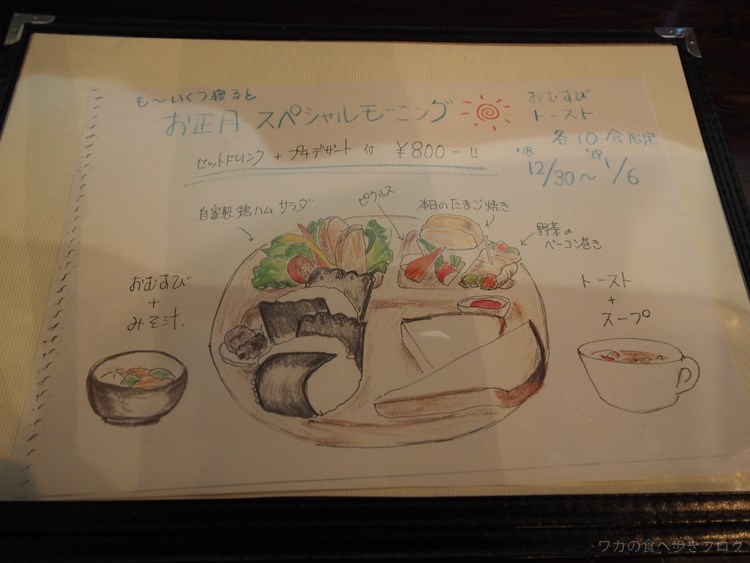 も〜いくつ寝ると
お正月 スペシャルモーニング
セットドリンク + プチデザート 付 ¥800-!!
おむすび
トースト
各10食限定
'18 12/30〜'19 1/6
自家製 鶏ハム サラダ
ピクルス
本日のたまご焼き
野菜の
ベーコン巻き
おむすび
+
みそ汁.
トースト
+
スープ
ワカの食べ歩きブログ